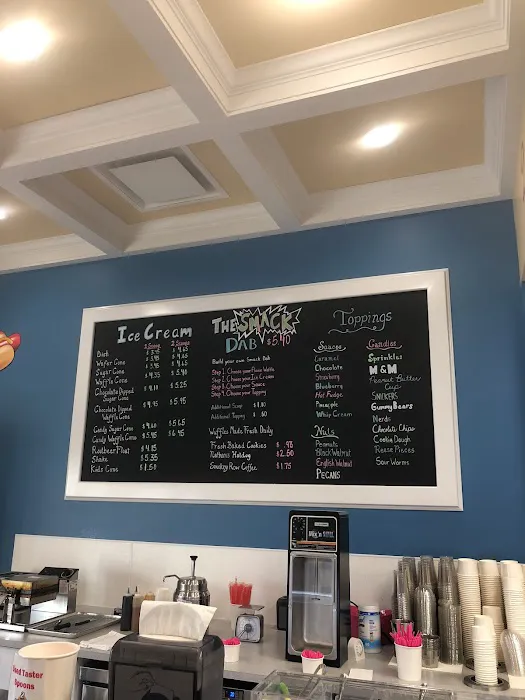 Ice Cream
1 Scoop 2 Scoops
Dish $3.95 $4.65
Wafer Cone $3.95 $4.65
Sugar Cone
Waffle Cone
Chocolate Dipped
Sugar Cone $4.10 $5.25
Chocolate Dipped
Waffle Cone $4.95 $5.95
Candy Sugar Cone $4.60 $5.65
Candy Waffle Cone $5.45 $6.45
Rootbeer Float $4.85
Shake $5.35
Kids Cone $1.50
THE SMACK
DAB $5.40
Build your own Smack Dab
Step 1. Choose your Flavor Waffle
Step 2. Choose your Ice Cream
Step 3. Choose your Sauce
Step 4. Choose your Topping
Additional Scoop
Additional Topping $.60
Waffles Made Fresh Daily
Fresh Baked Cookies $.95
Nathans Hotdog $2.50
Smokey Row Coffee $1.75
Toppings
Sauces
Caramel
Chocolate
Strawberry
Blueberry
Hot Fudge
Pineapple
Whip Cream
Nuts
Peanuts
Black Walnut
English Walnut
PECANS
Candies
Sprinkles
M&M
Peanut Butter
Cup
SNICKERS
Gummy Bears
Nerds
Chocolate Chips
Cookie Dough
Reese Pieces
Sour Worms
Taster
Spoons